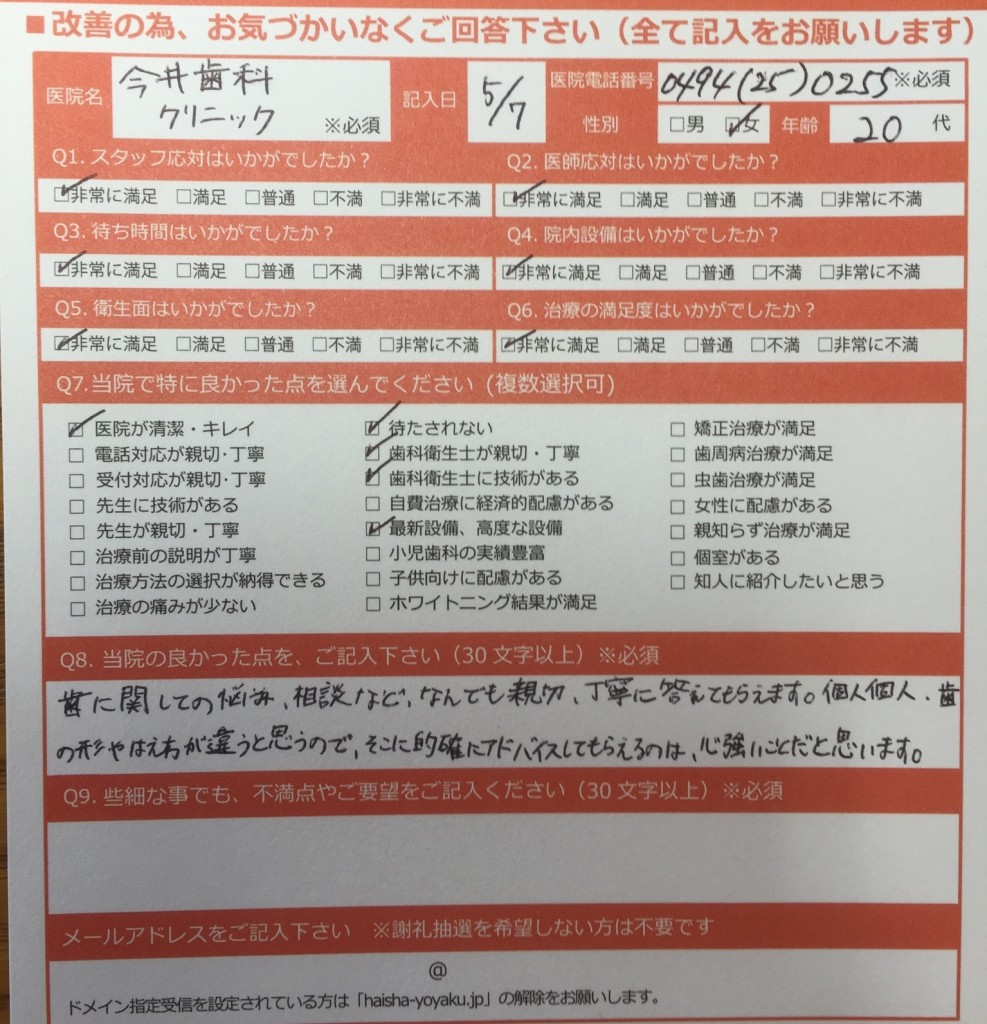 ■改善の為、お気づかいなくご回答下さい（全て記入をお願いします）
医院名 今井歯科 クリニック ※必須 記入日 5/7 医院電話番号 0494(25)0255 ※必須
性別 □男 ☑女 年齢 20 代
Q1. スタッフ応対はいかがでしたか？ Q2. 医師応対はいかがでしたか？
☑非常に満足 □満足 □普通 □不満 □非常に不満 ☑非常に満足 □満足 □普通 □不満 □非常に不満
Q3. 待ち時間はいかがでしたか？ Q4. 院内設備はいかがでしたか？
☑非常に満足 □満足 □普通 □不満 □非常に不満 ☑非常に満足 □満足 □普通 □不満 □非常に不満
Q5. 衛生面はいかがでしたか？ Q6. 治療の満足度はいかがでしたか？
☑非常に満足 □満足 □普通 □不満 □非常に不満 ☑非常に満足 □満足 □普通 □不満 □非常に不満
Q7.当院で特に良かった点を選んでください (複数選択可)
☑ 医院が清潔・キレイ ☑ 待たされない □ 矯正治療が満足
□ 電話対応が親切･丁寧 ☑ 歯科衛生士が親切・丁寧 □ 歯周病治療が満足
□ 受付対応が親切･丁寧 ☑ 歯科衛生士に技術がある □ 虫歯治療が満足
□ 先生に技術がある □ 自費治療に経済的配慮がある □ 女性に配慮がある
□ 先生が親切・丁寧 ☑ 最新設備、高度な設備 □ 親知らず治療が満足
□ 治療前の説明が丁寧 □ 小児歯科の実績豊富 □ 個室がある
□ 治療方法の選択が納得できる □ 子供向けに配慮がある □ 知人に紹介したいと思う
□ 治療の痛みが少ない □ ホワイトニング結果が満足
Q8. 当院の良かった点を、ご記入下さい（30 文字以上）※必須
歯に関しての悩み、相談など、なんでも親切、丁寧に答えてもらえます。個人個人、歯
の形やはえ方が違うと思うので、そこに的確にアドバイスしてもらえるのは、心強いことだと思います。
Q9. 些細な事でも、不満点やご要望をご記入ください（30 文字以上）※必須
メールアドレスをご記入下さい ※謝礼抽選を希望しない方は不要です
@
ドメイン指定受信を設定されている方は「haisha-yoyaku.jp」の解除をお願いします。